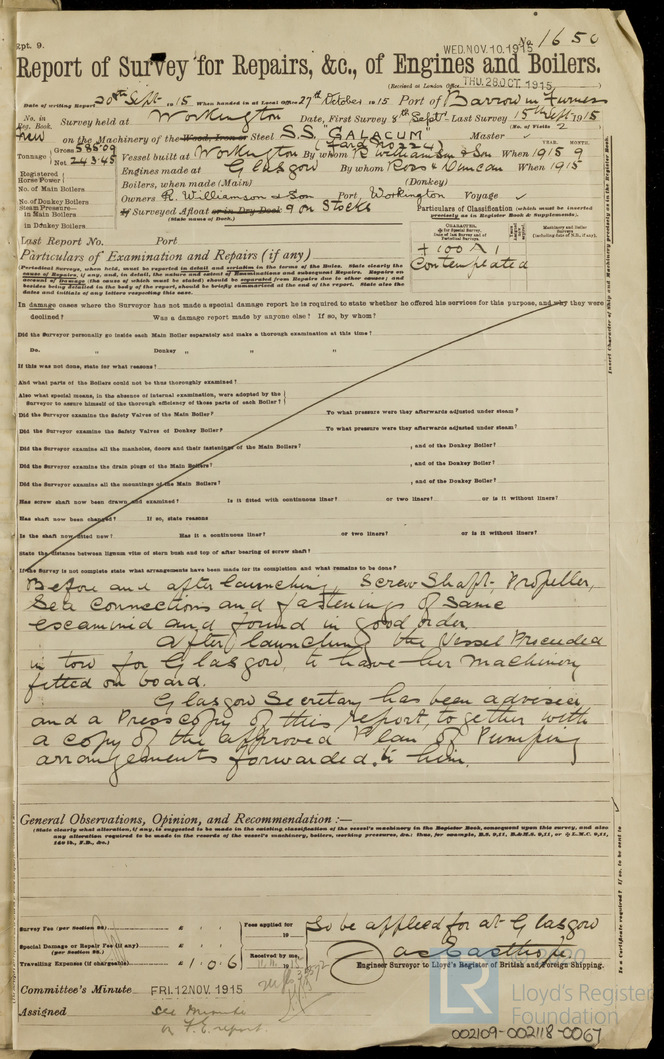 Rpt. 9.
WED.NOV.10.1915
No. 1650
Report of Survey for Repairs, &c., of Engines and Boilers.
(Received at London Office THU.28.OCT.1915)
Date of writing Report 20th Sept 1915 When handed in at Local Office 27th October 1915 Port of Barrow in Furness
No. in Reg. Book. Survey held at Workington Date, First Survey 8th Septr Last Survey 15th Sept 1915
(No. of Visits 2)
new on the Machinery of the Wood, Iron or Steel S.S. "GALACUM" Master
(Yard No 224)
YEAR. MONTH.
Tonnage Gross 585.09 Net 243.45 Vessel built at Workington By whom R Williamson & Son When 1915 9
Engines made at Glasgow By whom Ross & Duncan When 1915
Registered Horse Power
Boilers, when made (Main) (Donkey)
No. of Main Boilers
Owners R. Williamson & Son Port Workington Voyage
No. of Donkey Boilers
Steam Pressure—
in Main Boilers
in Donkey Boilers
If Surveyed Afloat or in Dry Dock & on Stocks
(State name of Dock.)
Particulars of Classification (which must be inserted precisely as in Register Book & Supplements).
Last Report No. Port
+ 100 A 1
Contemplated
Particulars of Examination and Repairs (if any)
(Periodical Surveys, when held, must be reported in detail and seriatim in the terms of the Rules. State clearly the
cause of Repairs, if any, and, in detail, the nature and extent of Examinations and subsequent Repairs. Repairs on
account of Damage (the cause of which must be stated) should be separated from Repairs due to other causes; and
besides being detailed in the body of the report, should be briefly summarized at the end of the report. State also the
dates and initials of any letters respecting this case.
Insert Character of Ship and Machinery precisely as in the Register Book.
In damage cases where the Surveyor has not made a special damage report he is required to state whether he offered his services for this purpose, and why they were
declined? Was a damage report made by anyone else? If so, by whom?
Did the Surveyor personally go inside each Main Boiler separately and make a thorough examination at this time?
Do. " Donkey " " "
If this was not done, state for what reasons?
And what parts of the Boilers could not be thus thoroughly examined?
Also what special means, in the absence of internal examination, were adopted by the
Surveyor to assure himself of the thorough efficiency of those parts of each Boiler?
Did the Surveyor examine the Safety Valves of the Main Boiler? To what pressure were they afterwards adjusted under steam?
Did the Surveyor examine the Safety Valves of Donkey Boiler? To what pressure were they afterwards adjusted under steam?
Did the Surveyor examine all the manholes, doors and their fastenings of the Main Boilers? , and of the Donkey Boiler?
Did the Surveyor examine the drain plugs of the Main Boilers? , and of the Donkey Boiler?
Did the Surveyor examine all the mountings of the Main Boilers? , and of the Donkey Boiler?
Has screw shaft now been drawn and examined? Is it fitted with continuous liner? or two liners? or is it without liners?
Has shaft now been changed? If so, state reasons
Is the shaft now fitted new? Has it a continuous liner? or two liners? or is it without liners?
State the distance between lignum vitæ of stern bush and top of after bearing of screw shaft?
If the Survey is not complete state what arrangements have been made for its completion and what remains to be done?
Before and after launching, Screw Shaft, Propeller,
Sea Connections and fastenings of same
examined and found in good order.
After launching the Vessel Proceeded
in tow for Glasgow, to have her machinery
fitted on board.
Glasgow Secretary has been advised
and a Press copy of this report, together with
a copy of the approved Plan of Pumping
arrangements forwarded to him.
General Observations, Opinion, and Recommendation:—
(State clearly what alteration, if any, is suggested to be made in the existing classification of the vessel's machinery in the Register Book, consequent upon this survey, and also
any alteration required to be made in the records of the vessel's machinery, boilers, working pressures, &c.: thus, for example, B.S. 9,11, B.&M.S. 9,11, or L.M.C. 9,11,
160 lb., F.D., &c.)
Survey Fee (per Section 28) £ : : Fees applied for 19
To be applied for at Glasgow
Special Damage or Repair Fee (if any) £ : :
(per Section 28.)
Travelling Expenses (if chargeable) £ 1 : 0 : 6 Received by me, 19
Engineer Surveyor to Lloyd's Register of British and Foreign Shipping.
Committee's Minute FRI.12 NOV.1915
Assigned See minute
on F.E. report.
LR Lloyd's Register
Foundation
002109-002118-0067